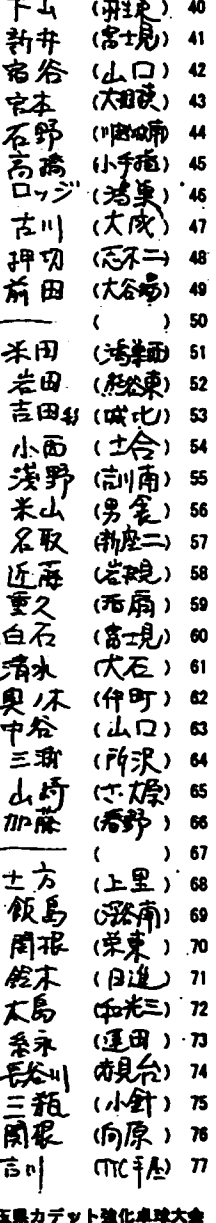 下山 (羽生東) 40
新井 (富士見) 41
宿谷 (山口) 42
宮本 43
石野 44
高橋 (小手指) 45
ロッジ (鴻巣) 46
古川 (大成) 47
押切 (忍不二) 48
前田 (大谷場) 49
( ) 50
米田 (鴻巣西) 51
岩田 (熊谷東) 52
吉田 (城北) 53
小西 (土合) 54
浅野 55
米山 56
名取 (新座二) 57
近藤 58
重久 59
白石 (富士見) 60
清水 (大石) 61
奥ノ木 (仲町) 62
中谷 (山口) 63
三浦 (所沢) 64
山崎 65
加藤 66
( ) 67
土方 (上里) 68
飯島 69
関根 (栄東) 70
鈴木 (日進) 71
大島 (和光三) 72
74
長谷川
三瓶 (小針) 75
関根 (向原) 76
古川 77
玉県カデット強化卓球大会